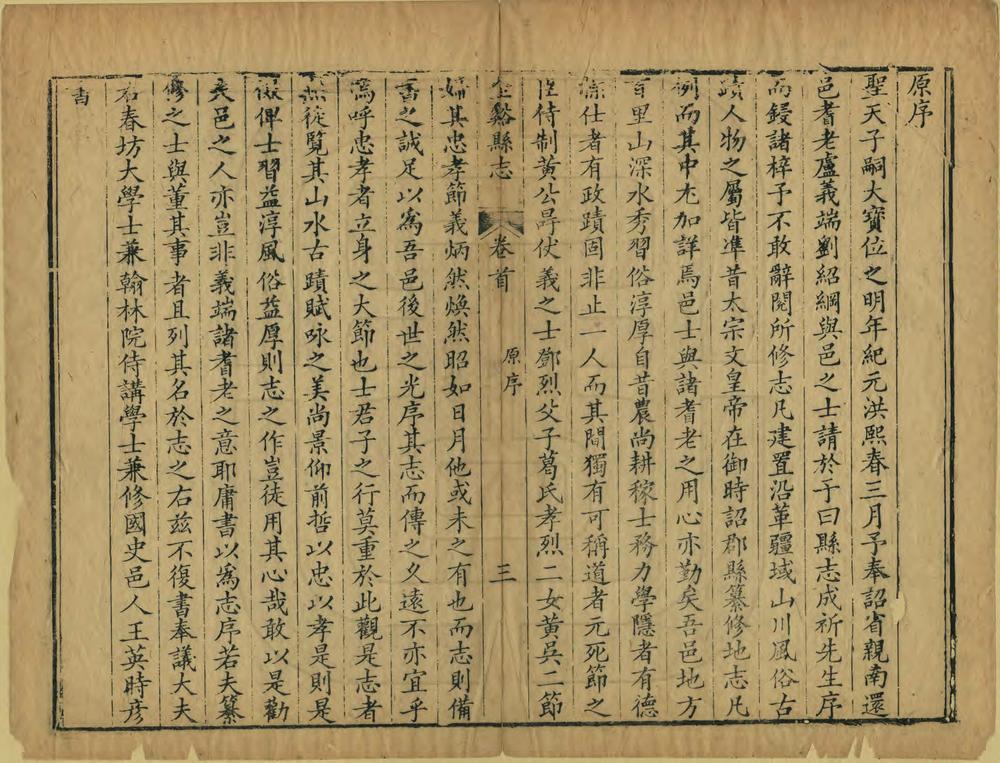 原序
聖天子嗣大寶位之明年紀元洪熙春三月予奉詔省親南還
邑耆老盧義端劉紹綱與邑之士請於予曰縣志成祈先生序
而鋟諸梓予不敢辭閱所修志凡建置沿革疆域山川風俗古
蹟人物之屬皆凖昔太宗文皇帝在御時詔郡縣纂修地志凡
例而其中尤加詳焉邑士與諸耆老之用心亦勤矣吾邑地方
百里山深水秀習俗淳厚自昔農尚耕稼士務力學隱者有德
仕者有政蹟固非止一人而其間獨有可稱道者元死節之
待制黃公昪仗義之士鄧烈父子葛氏孝烈二女黃吳二節
金谿縣志 卷首 原序 三
婦其忠孝節義炳然煥然昭如日月他或未之有也而志則備
書之誠足以爲吾邑後世之光序其志而傳之久遠不亦宜乎
嗚呼忠孝者立身之大節也士君子之行莫重於此觀是志者
無徒覽其山水古蹟賦咏之美尚景仰前哲以忠以孝是則是
俾士習益淳風俗益厚則志之作豈徒用其心哉敢以是勸
矣邑之人亦豈非義端諸耆老之意耶庸書以爲志序若夫纂
修之士與董其事者且列其名於志之右茲不復書奉議大夫
右春坊大學士兼翰林院侍講學士兼修國史邑人王英時彥
書